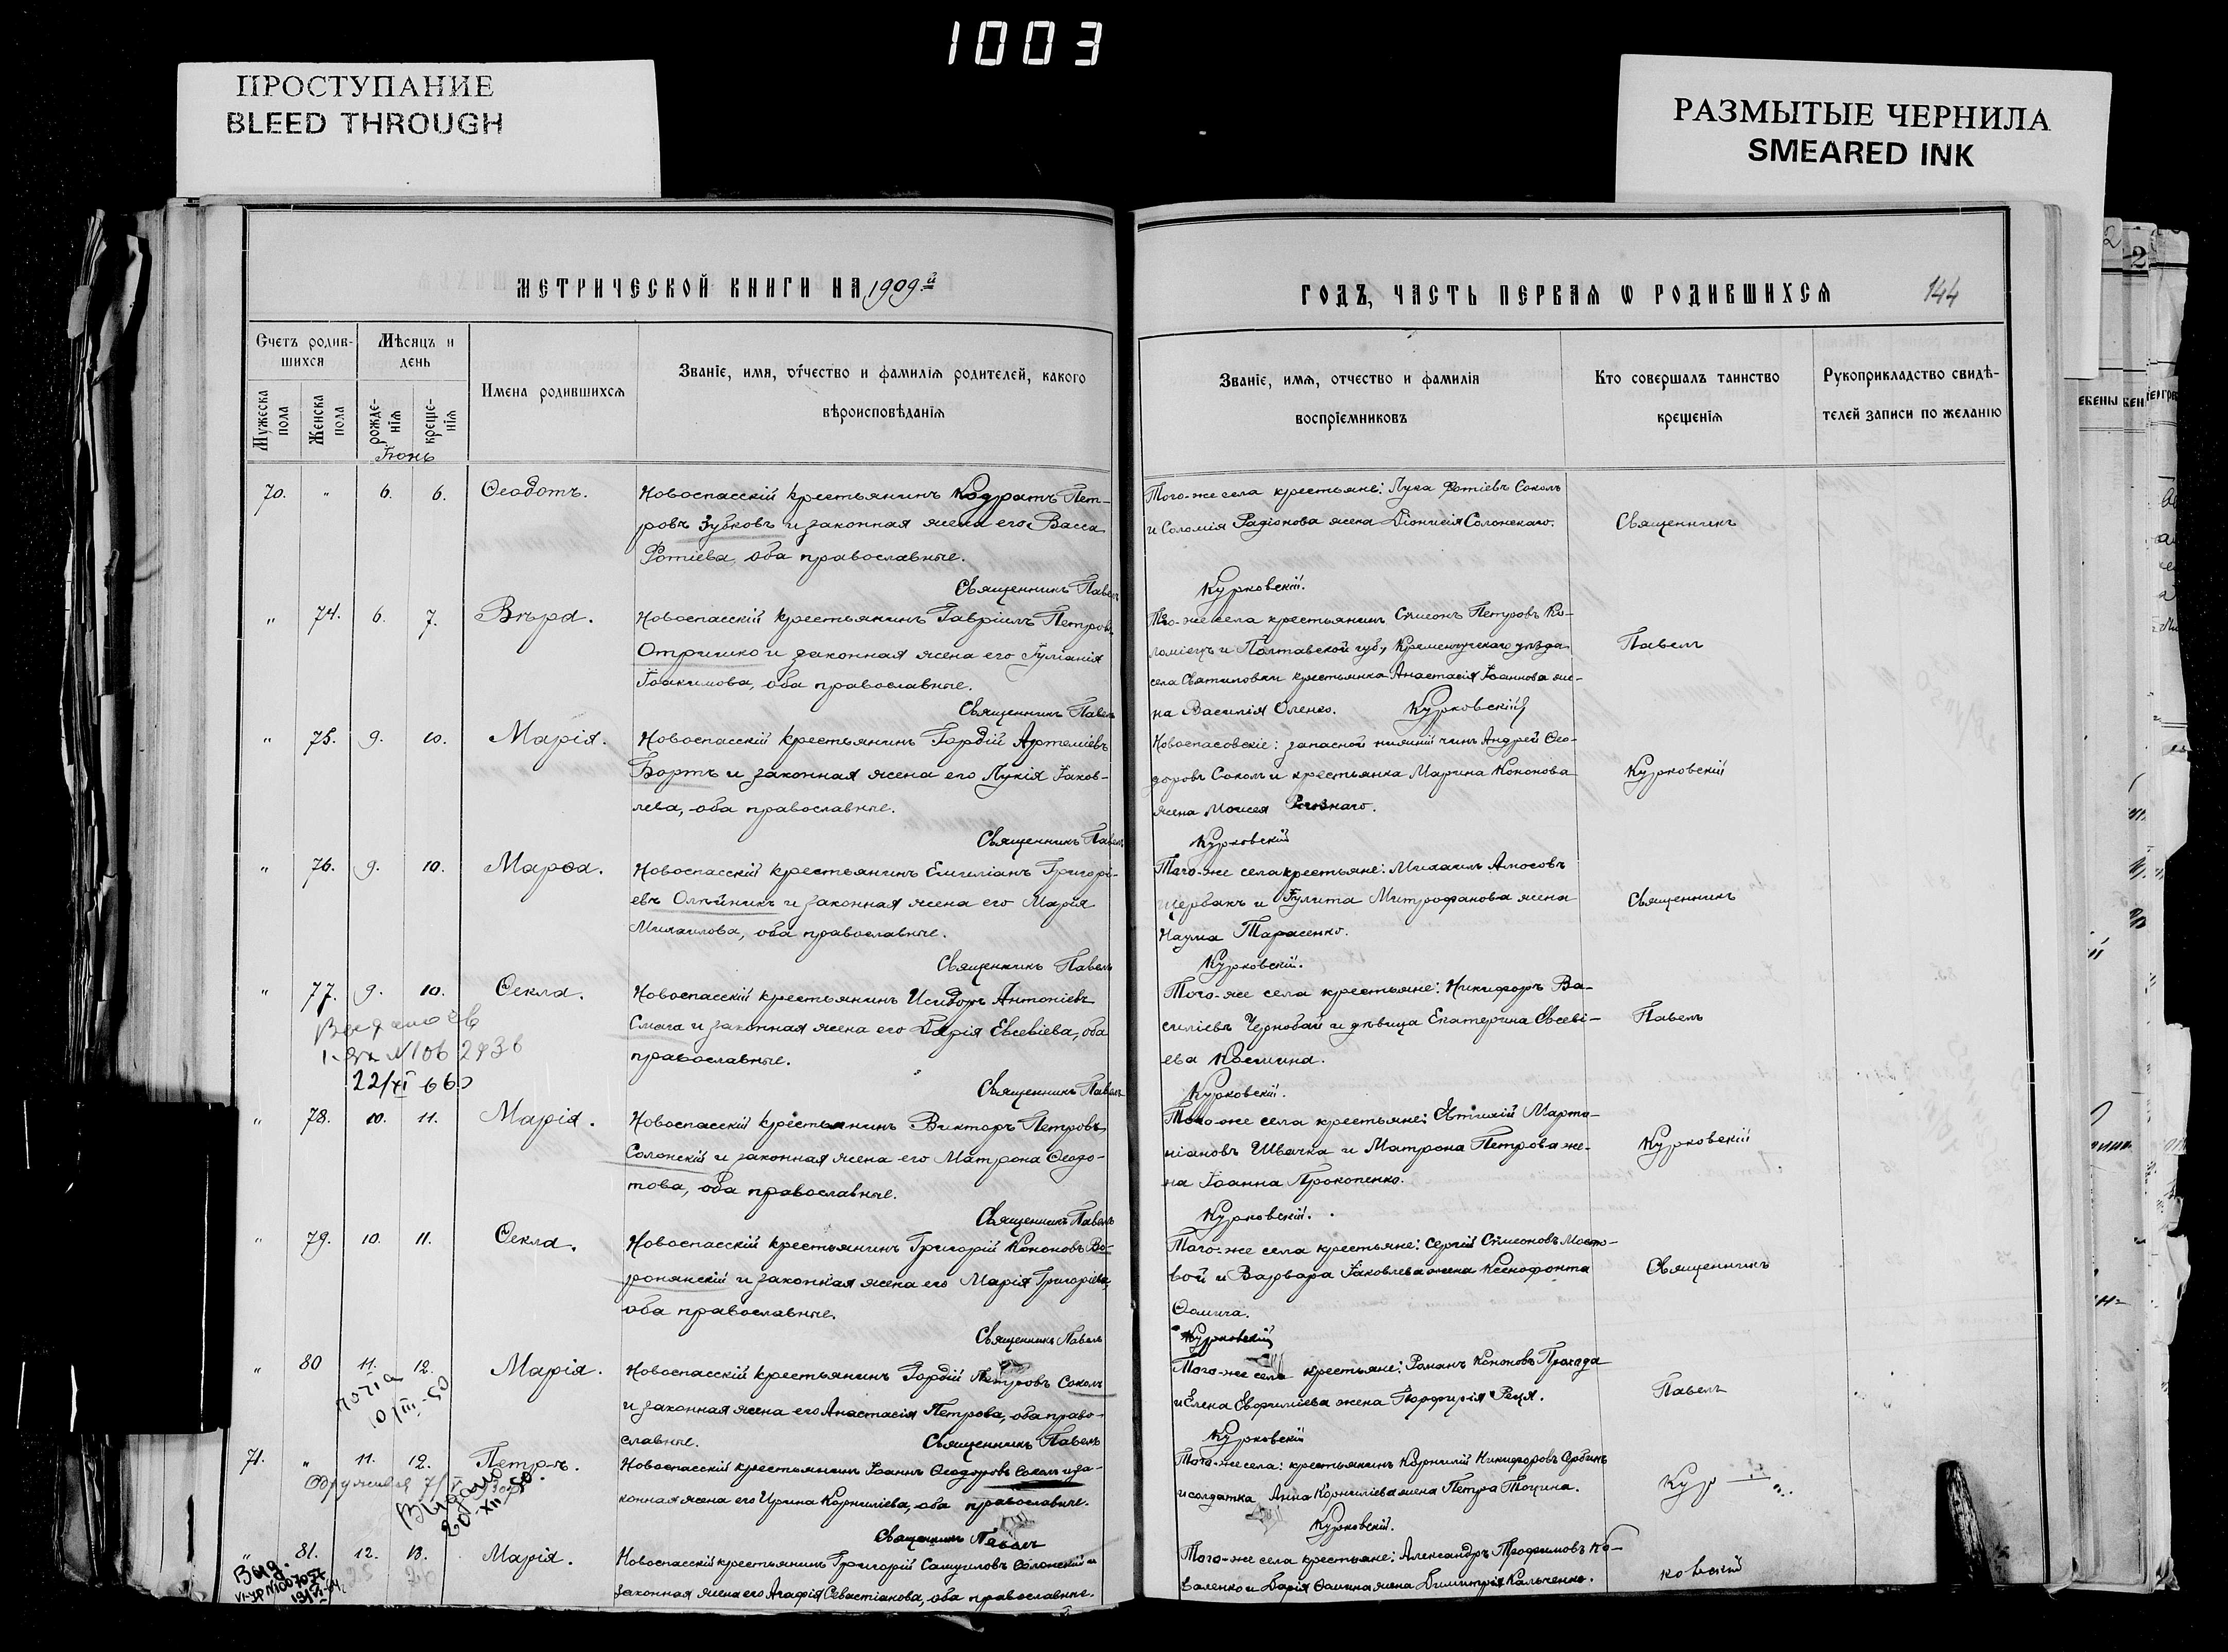 1003
ПРОСТУПАНИЕ
BLEED THROUGH
РАЗМЫТЫЕ ЧЕРНИЛА
SMEARED INK
МЕТРИЧЕСКОЙ КНИГИ НА 1909.й
Счетъ родив-
шихся
Мѣсяцъ и
день
Мужеска
пола
Женска
пола
рожде-
нія
креще-
нія
Имена родившихся
Званіе, имя, отчество и фамилія родителей, какого
вѣроисповѣданія
Іюнь
70. " 6. 6. Ѳеодотъ.
Новоспасскій крестьянинъ Кодратъ Пет-
ровъ Зубковъ и законная жена его Васса
Фотіева, оба православные.
Священникъ Павелъ
" 74. 6. 7. Вѣра.
Новоспасскій крестьянинъ Гавріилъ Петровъ
Отришко и законная жена его Іуліанія
Іоакимова, оба православные.
Священникъ Павелъ
" 75. 9. 10. Марія.
Новоспасскій крестьянинъ Гордій Артеміевъ
Бортъ и законная жена его Лукія Іаков-
лева, оба православные.
Священникъ Павелъ
" 76. 9. 10. Марѳа.
Новоспасскій крестьянинъ Емиліанъ Григорі-
евъ Олѣйникъ и законная жена его Марія
Михаилова, оба православные.
Священникъ Павелъ
" 77. 9. 10. Ѳекла.
Новоспасскій крестьянинъ Исидоръ Антоніевъ
Смага и законная жена его Дарія Евсевіева, оба
православные.
22/XI 66
Священникъ Павелъ
" 78. 10. 11. Марія.
Новоспасскій крестьянинъ Викторъ Петровъ
Солонскій и законная жена его Матрона Ѳеодо-
това, оба православные.
Священникъ Павелъ
" 79. 10. 11. Ѳекла.
Новоспасскій крестьянинъ Григорій Кононовъ Во-
ронянскій и законная жена его Марія Григоріева,
оба православные.
Священникъ Павелъ
" 80 11. 12. Марія.
10/III-50
Новоспасскій крестьянинъ Гордій Петровъ Соколъ
и законная жена его Анастасія Петрова, оба право-
славные.
Священникъ Павелъ
71. " 11. 12. Петръ.
Видано
20-XII 50.
Новоспасскій крестьянинъ Іоаннъ Ѳеодоровъ Соколъ и за-
конная жена его Ирина Корниліева, оба православные.
Священникъ Павелъ
" 81. 12. 13. Марія.
Выд.
Новоспасскій крестьянинъ Григорій Самуиловъ Солонскій и
законная жена его Агафія Севастіанова, оба православные.
ГОДЪ, ЧАСТЬ ПЕРВАЯ Ѡ РОДИВШИХСЯ
144
Званіе, имя, отчество и фамилія
воспріемниковъ
Кто совершалъ таинство
крещенія
Рукоприкладство свидѣ-
телей записи по желанію
Того-же села крестьяне: Лука Фотіевъ Соколъ
и Соломія Радіонова жена Діонисія Солонскаго.
Священникъ
Курковскій.
Того-же села крестьянинъ Сѵмеонъ Петровъ Ко-
ломіецъ и Полтавской губ., Кременчугскаго уѣзда
села Святиловки крестьянка Анастасія Іоаннова же-
на Василія Оленко. Курковскій
Павелъ
Новоспасовскіе: запасной нижній чинъ Андрей Ѳео-
доровъ Соколъ и крестьянка Марина Кононова
жена Моисея Рогознаго.
Курковскій
Курковскій
Того-же села крестьяне: Михаилъ Амосовъ
Щербакъ и Іулита Митрофанова жена
Наума Тарасенко.
Священникъ
Курковскій.
Того-же села крестьяне: Никифоръ Ва-
силіевъ Чернобай и дѣвица Екатерина Евсеві-
ева Космина.
Павелъ
Курковскій.
Того-же села крестьяне: Евтихій Марти-
ніановъ Швачка и Матрона Петрова же-
на Іоанна Прокопенко.
Курковскій
Курковскій.
Того-же села крестьяне: Сергій Сѵмеоновъ Мосто-
вой и Варвара Іаковлева жена Ксенофонта
Ѳомича.
Священникъ
Курковскій
Того-же села крестьяне: Романъ Кононовъ Прохода
и Елена Евфиміева жена Порфирія Реця.
Павелъ
Курковскій
Того-же села: крестьянинъ Корнилій Никифоровъ Сербинъ
и солдатка Анна Корниліева жена Петра Тоцина.
Кур
Курковскій.
Того-же села крестьяне: Александръ Трофимовъ Ко-
валенко и Дарія Ѳомина жена Димитрія Кальченко.
ковскій